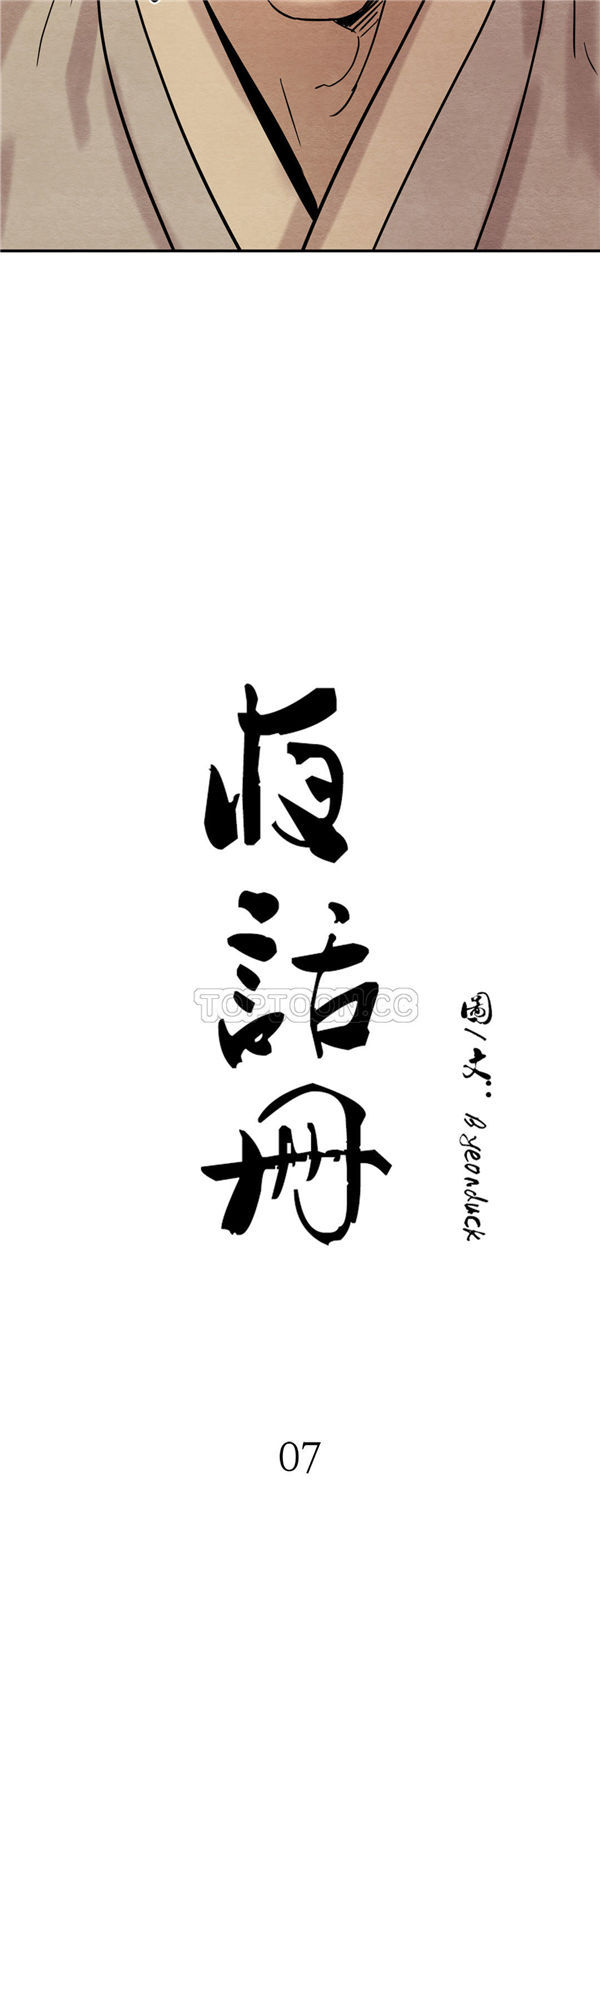 夜話冊
TOPTOON.CC
圖/文: Byeonduck
07